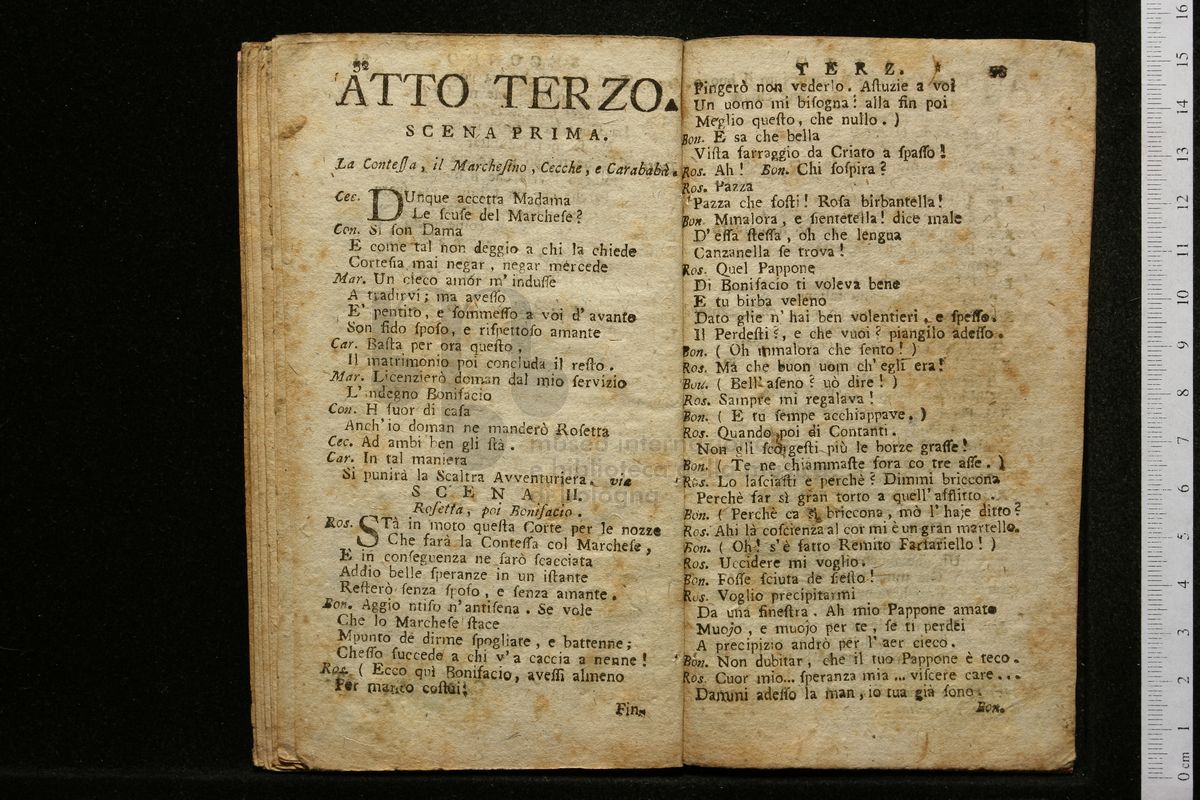 52
ATTO TERZO.
SCENA PRIMA.
La Contessa, il Marchesino, Cecche, e Carababà.
Cec. DUnque accetta Madama
Le scuse del Marchese?
Con. Si son Dama
E come tal non deggio a chi la chiede
Cortesia mai negar, negar mercede
Mar. Un cieco amor m'indusse
A tradirvi; ma avesso
E' pentito, e sommesso a voi d'avante
Son fido sposo, e rispettoso amante
Car. Basta per ora questo,
Il matrimonio poi concluda il resto.
Mar. Licenzierò doman dal mio servizio
L'indegno Bonifacio
Con. H fuor di casa
Anch'io doman ne manderò Rosetta
Cec. Ad ambi ben gli stà.
Car. In tal maniera
Si punirà la Scaltra Avventuriera. via
SCENA II.
Rosetta, poi Bonifacio.
Ros. STà in moto questa Corte per le nozze
Che farà la Contessa col Marchese,
E in conseguenza ne sarò scacciata
Addio belle speranze in un istante
Resterò senza sposo, e senza amante.
Bon. Aggio ntiso n'antifena. Se vole
Che lo Marchese stace
Mpunto de dirme spogliate, e battenne;
Chesso succede a chi v'a caccia a nenne!
Ros. (Ecco qui Bonifacio, avessi almeno
Per marito costui;
Fin-
TERZ. 53
Fingerò non vederlo. Astuzie a voi
Un uomo mi bisogna: alla fin poi
Meglio questo, che nullo.)
Bon. E sa che bella
Vista farraggio da Criato a spasso!
Ros. Ah! Bon. Chi sospira?
Ros. Pazza
Pazza che fosti! Rosa birbantella!
Bon. Mmalora, e sientetella! dice male
D'essa stessa, oh che lengua
Canzanella se trova!
Ros. Quel Pappone
Di Bonifacio ti voleva bene
E tu birba veleno
Dato glie n'hai ben volentieri, e spesso.
Il Perdesti?, e che vuoi? piangilo adesso.
Bon. (Oh mmalora che sento!)
Ros. Ma che buon uom ch'egli era!
Bon. (Bell'aseno? uò dire!)
Ros. Sampre mi regalava!
Bon. (E tu sempe acchiappave.)
Ros. Quando poi di Contanti.
Non gli scorgesti più le borze grasse!
Bon. (Te ne chiammaste fora co tre asse.)
Ros. Lo lasciasti e perchè? Dimmi briccona
Perchè far sì gran torto a quell'afflitto.
Bon. (Perchè ca si briccona, mò l'haje ditto?
Ros. Ahi là coscienza al cor mi è un gran martello.
Bon. (Oh! s'è fatto Remito Farfariello!)
Ros. Uccidere mi voglio.
Bon. Fosse sciuta de sesto!
Ros. Voglio precipitarmi
Da una finestra. Ah mio Pappone amato
Muojo, e muojo per te, se ti perdei
A precipizio andrò per l'aer cieco.
Bon. Non dubitar, che il tuo Pappone è teco.
Ros. Cuor mio... speranza mia... viscere care...
Dammi adesso la man, io tua già sono.
Bon.
museo
e biblioteca
di bologna
0 cm 1 2 3 4 5 6 7 8 9 10 11 12 13 14 15 16